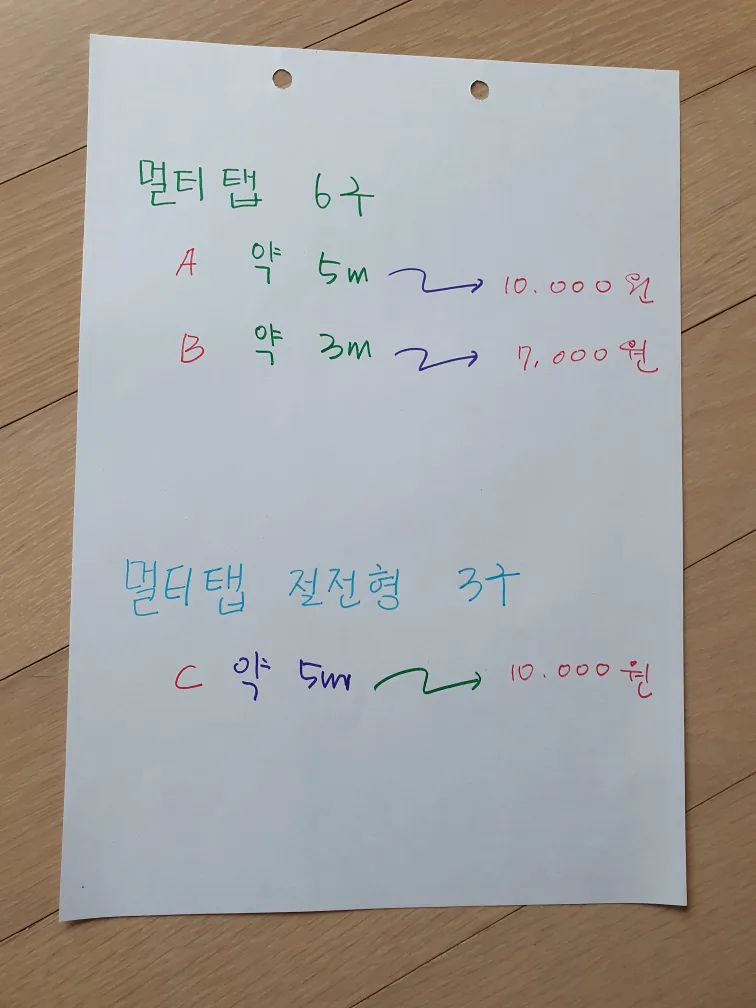 멀티탭 6구
A 약 5m → 10.000원
B 약 3m → 7,000원
멀티탭 절전형 3구
C 약 5m → 10.000원